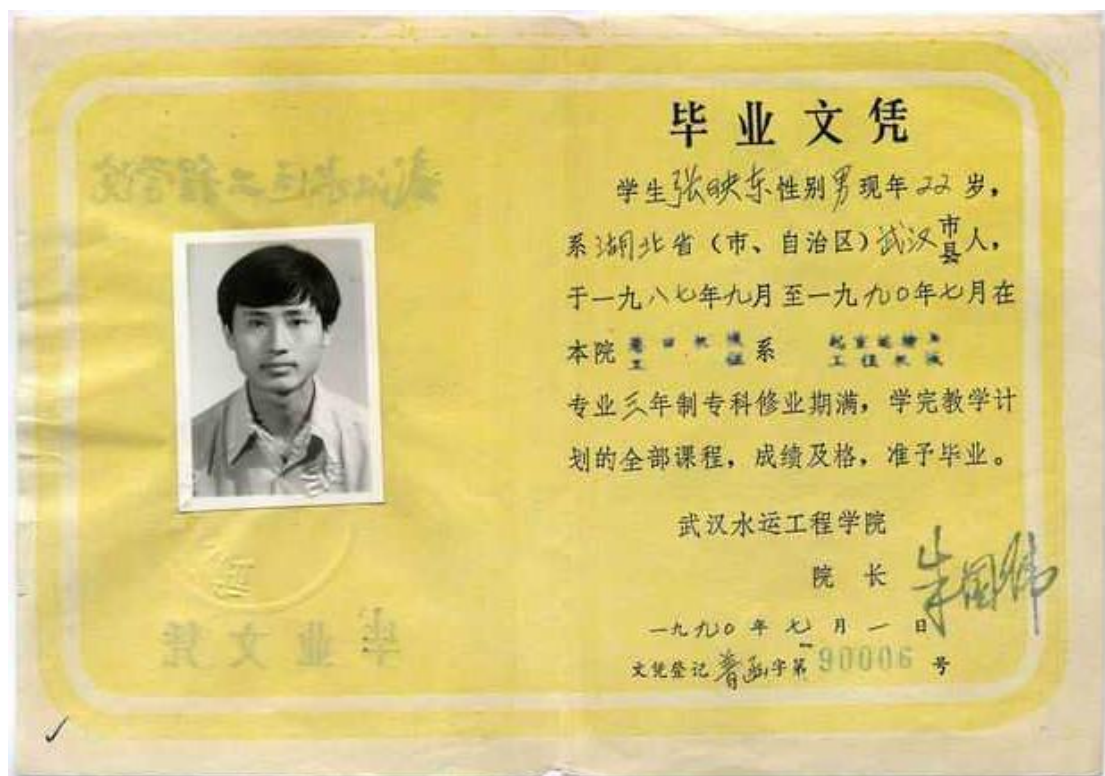 武汉水运工程学院
毕业文凭
毕业文凭
学生张映东性别男现年22岁，
系湖北省（市、自治区）武汉市县人，
于一九八七年九月至一九九〇年七月在
本院 系 起重运输与工程机械
专业三年制专科修业期满，学完教学计
划的全部课程，成绩及格，准予毕业。
武汉水运工程学院
院长 朱国伟
一九九〇年七月一日
文凭登记普函字第90006号